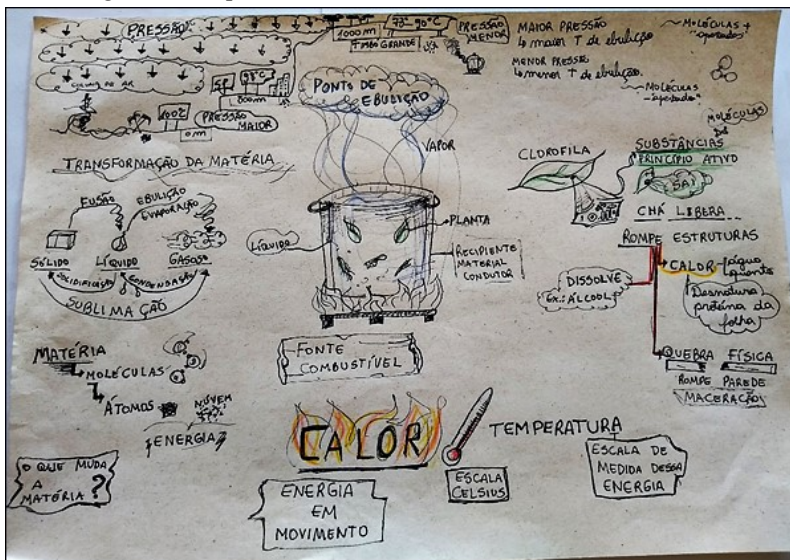 PRESSÃO
COLUNA DE AR
1000m
73° 90°C
PRESSÃO MENOR
MAIOR PRESSÃO
↳ maior T de ebulição
MENOR PRESSÃO
↳ menor T de ebulição
MOLÉCULAS +
"apertadas"
MOLÉCULAS
"apertadas"
SP
98°C
800m
0m
PRESSÃO
MAIOR
PONTO DE
EBULIÇÃO
VAPOR
TRANSFORMAÇÃO DA MATÉRIA
FUSÃO
EBULIÇÃO
EVAPORAÇÃO
SÓLIDO
LÍQUIDO
GASOSO
SOLIDIFICAÇÃO
CONDENSAÇÃO
SUBLIMAÇÃO
LÍQUIDO
PLANTA
RECIPIENTE
MATERIAL
CONDUTOR
FONTE
COMBUSTÍVEL
CLOROFILA
MOLÉCULAS
DAS
SUBSTÂNCIAS
PRINCÍPIO ATIVO
SAI
CHÁ LIBERA
ROMPE ESTRUTURAS
CALOR
água
quente
DISSOLVE
Ex.: ÁLCOOL
Desnatura
proteína da
folha
QUEBRA FÍSICA
ROMPE PAREDE
MACERAÇÃO
MATÉRIA
MOLÉCULAS
ÁTOMOS
NÚVEM
ENERGIA
O QUE MUDA
A
MATÉRIA?
CALOR
ENERGIA
EM
MOVIMENTO
TEMPERATURA
ESCALA
CELSIUS
ESCALA DE
MEDIDA DESSA
ENERGIA